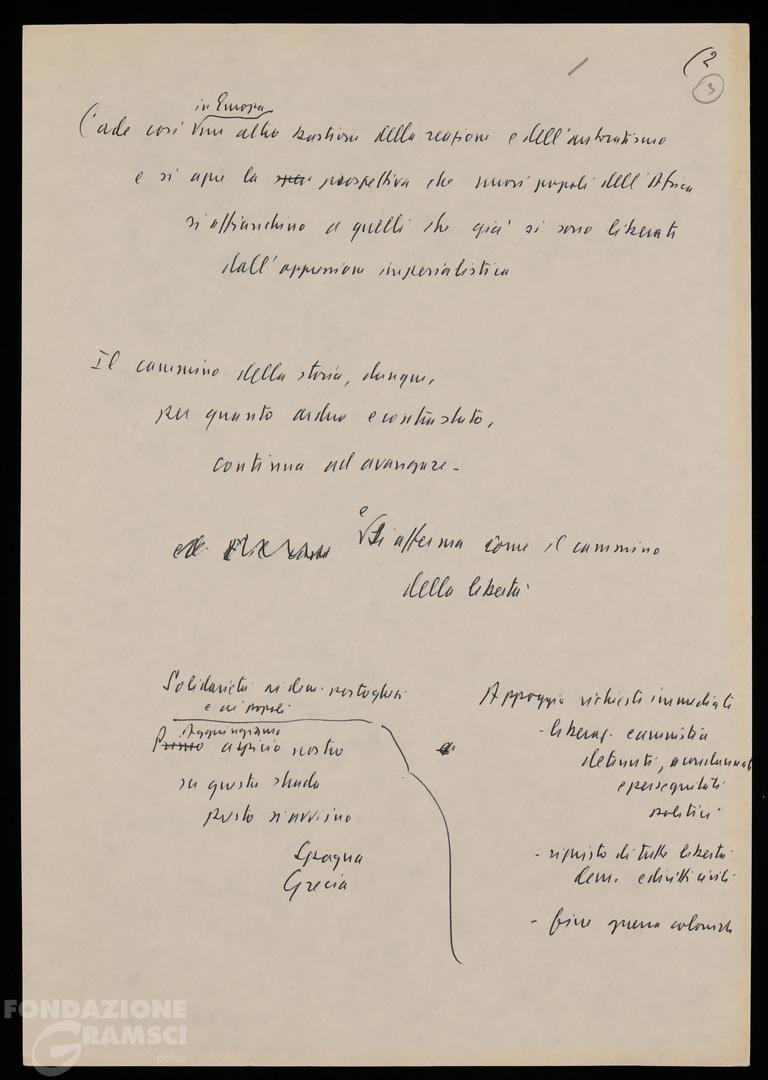 (2
3
in Europa
Cade così un altro bastione della reazione e dell'autoritarismo
e si apre la prospettiva che nuovi popoli dell'Africa
si affianchino a quelli che già si sono liberati
dall'oppressione imperialistica
Il cammino della storia, dunque,
per quanto arduo e contrastato,
continua ad avanzare -
e
si afferma come il cammino
della libertà
Solidarietà ai dem. portoghesi
e ai popoli
Aggiungiamo
auspicio nostro
su questa strada
presto si avviino
Spagna
Grecia
Appoggio richieste immediate
- liberaz. e amnistia
detenuti, condannati
e perseguitati
politici
- ripristo di tutte libertà
dem. e diritti civili
- fine guerra coloniale
FONDAZIONE
GRAMSCI
onlus